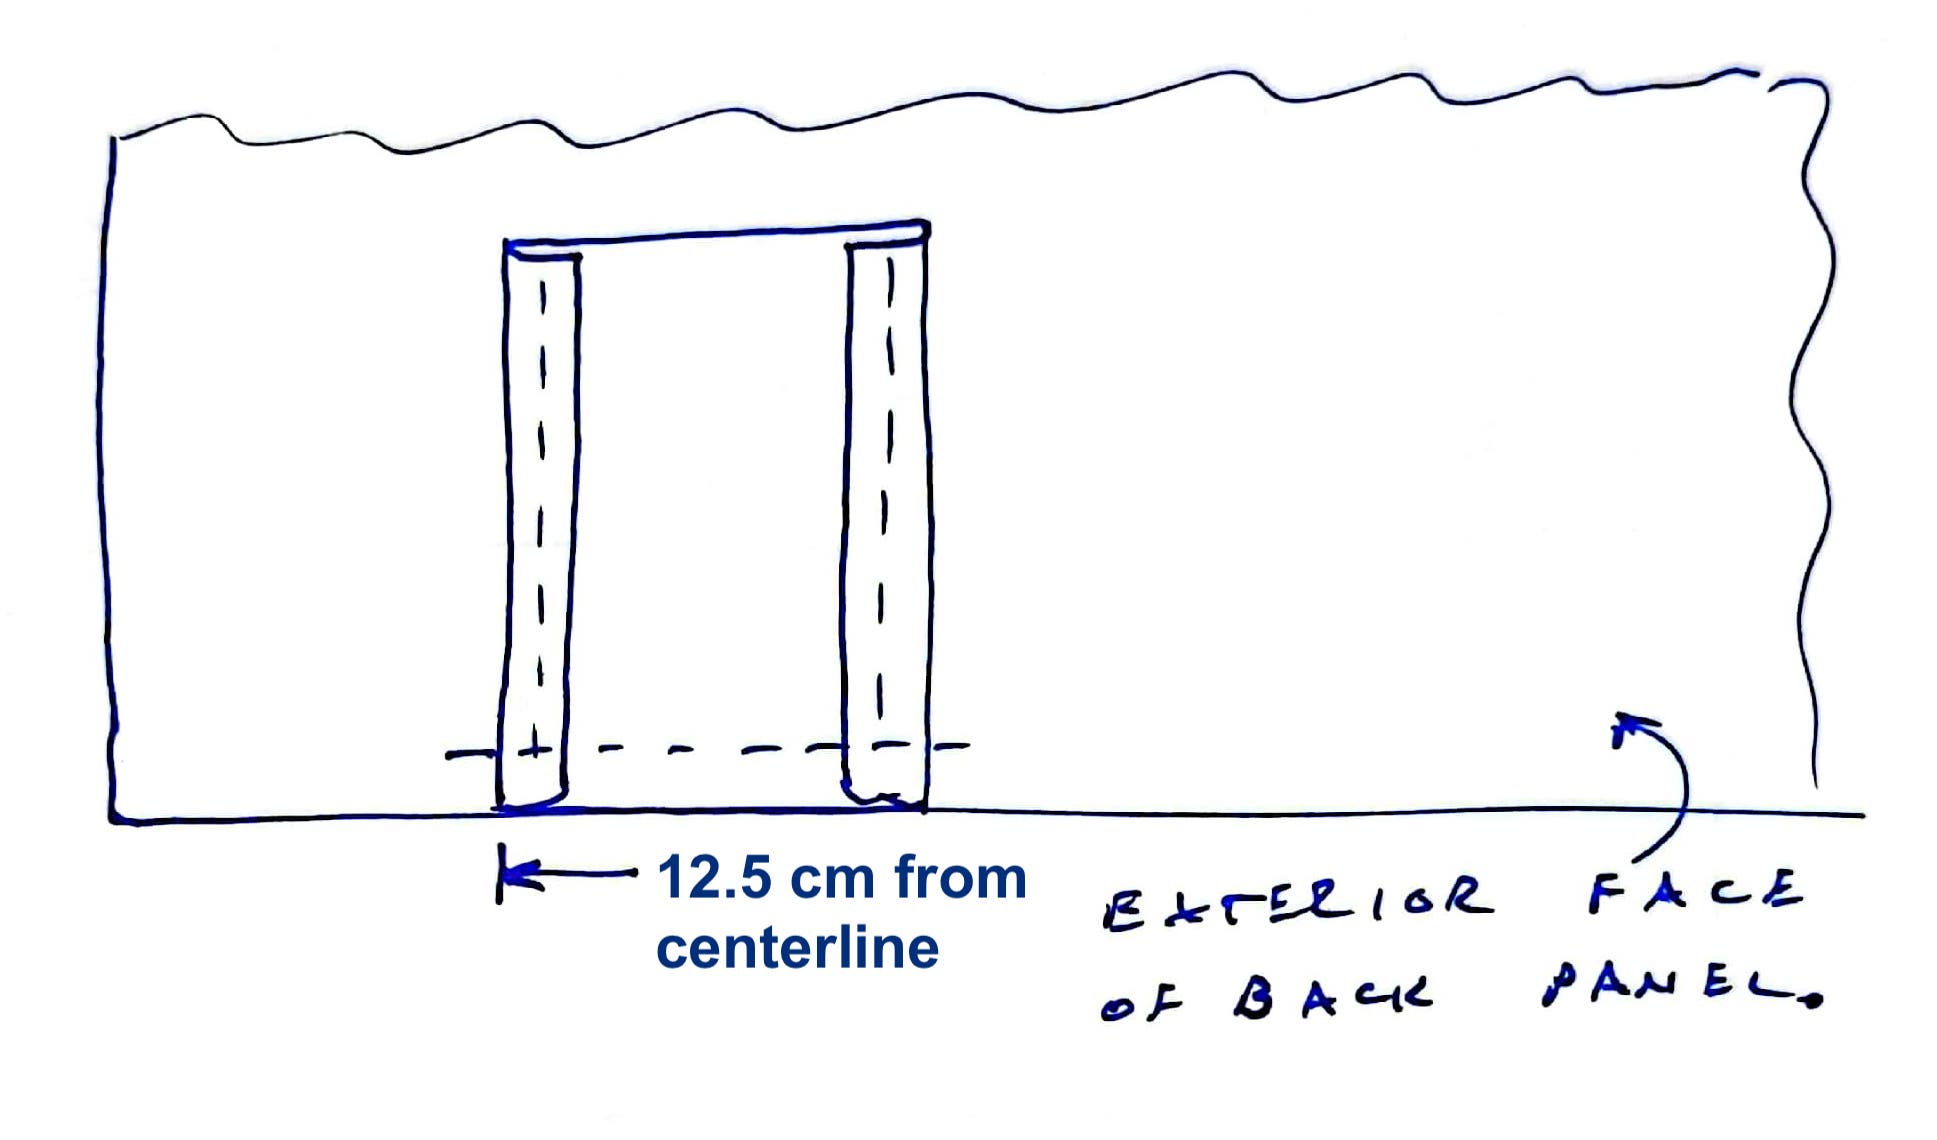 12.5 cm from
centerline
EXTERIOR FACE
OF BACK PANEL.